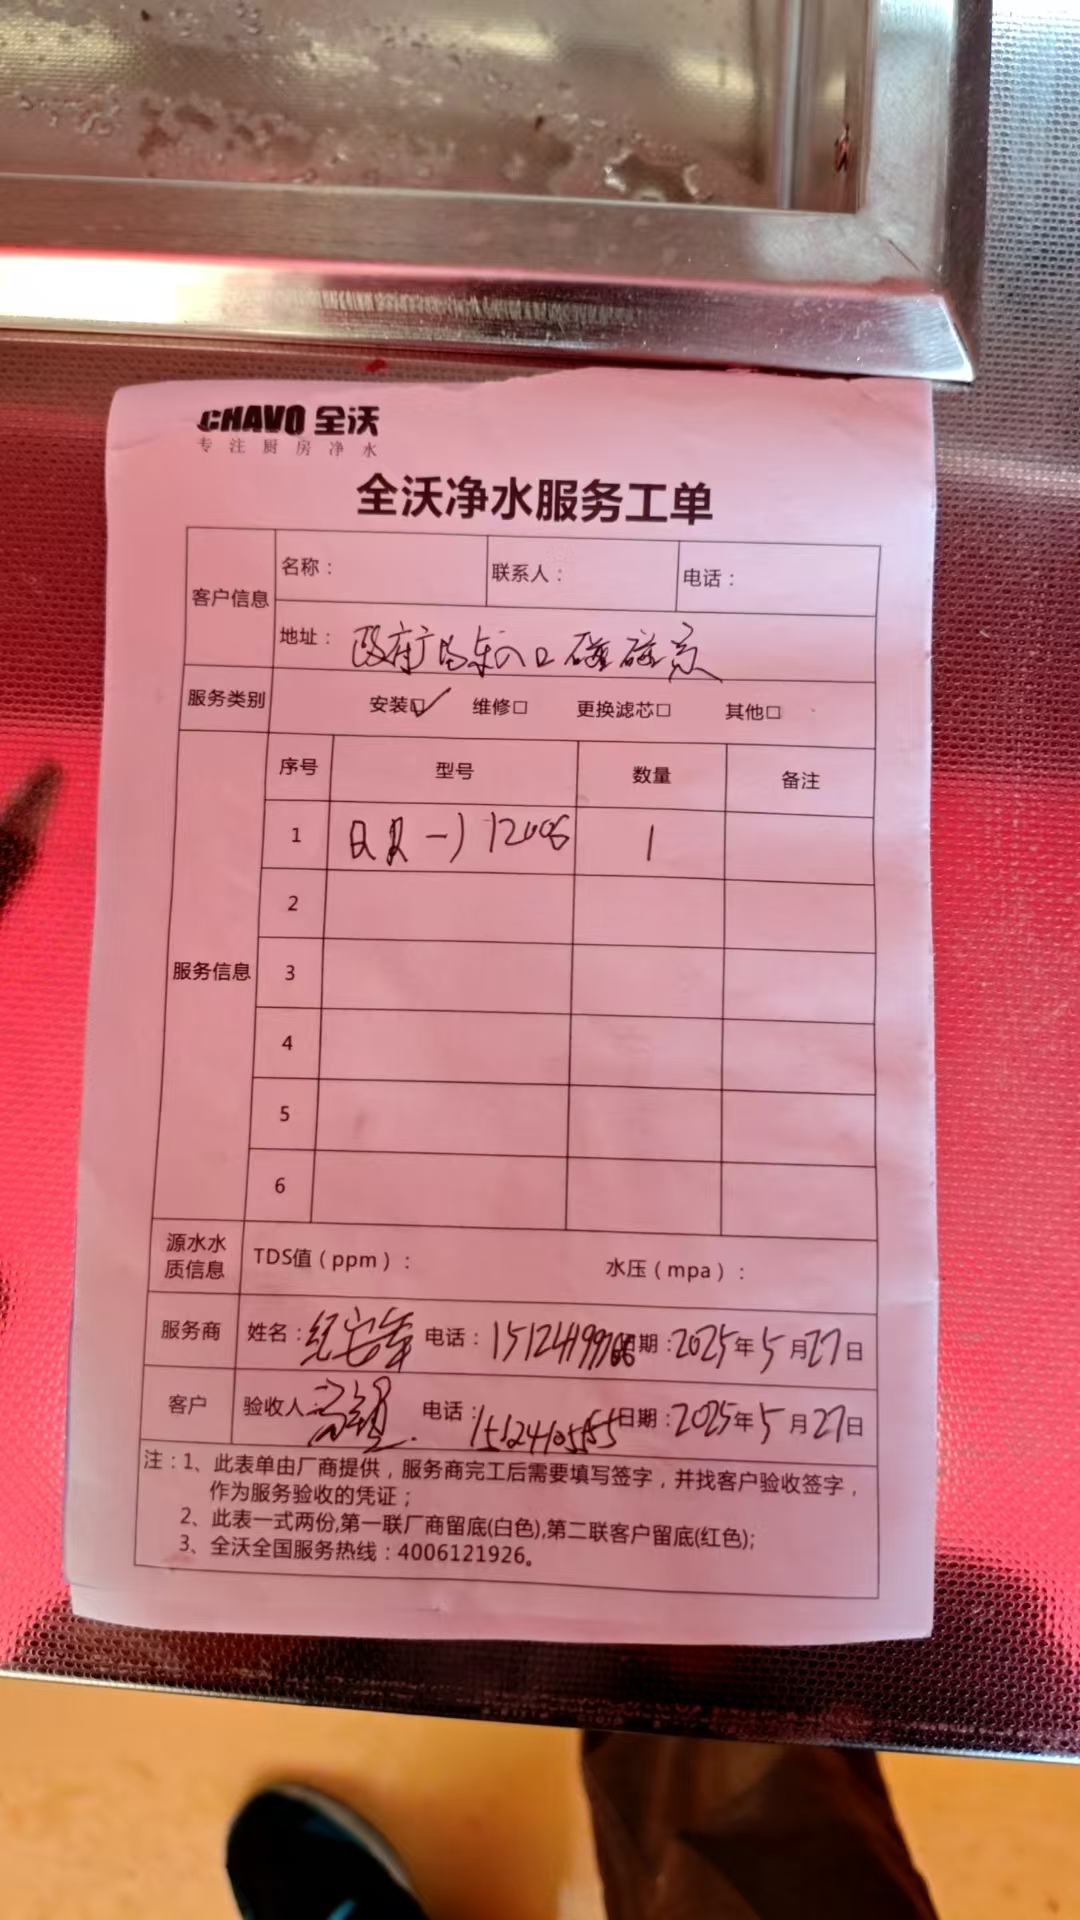 CHAVO 全沃
专注厨房净水
全沃净水服务工单
客户信息 名称： 联系人： 电话：
地址： 政府广场东入口碰碰凉
服务类别 安装☑ 维修□ 更换滤芯□ 其他□
服务信息 序号 型号 数量 备注
1 1
2
3
4
5
6
源水水质信息 TDS值（ppm）： 水压（mpa）：
服务商 姓名： 电话： 日期：2025年5月27日
客户 验收人 电话：15124105155 日期：2025年5月27日
注：1、此表单由厂商提供，服务商完工后需要填写签字，并找客户验收签字，
作为服务验收的凭证；
2、此表一式两份,第一联厂商留底(白色),第二联客户留底(红色);
3、全沃全国服务热线：4006121926。